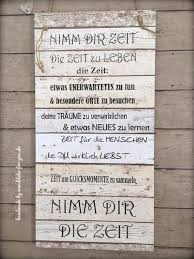 NIMM DIR ZEIT
DIE ZEIT ZU LEBEN
die Zeit:
etwas UNERWARTETES zu tun
& besondere ORTE zu besuchen
deine TRÄUME zu verwirklichen
& etwas NEUES zu lernen
ZEIT für die MENSCHEN
die DU wirklich LIEBST
ZEIT um GLÜCKSMOMENTE zu sammeln
NIMM DIR
DIE ZEIT